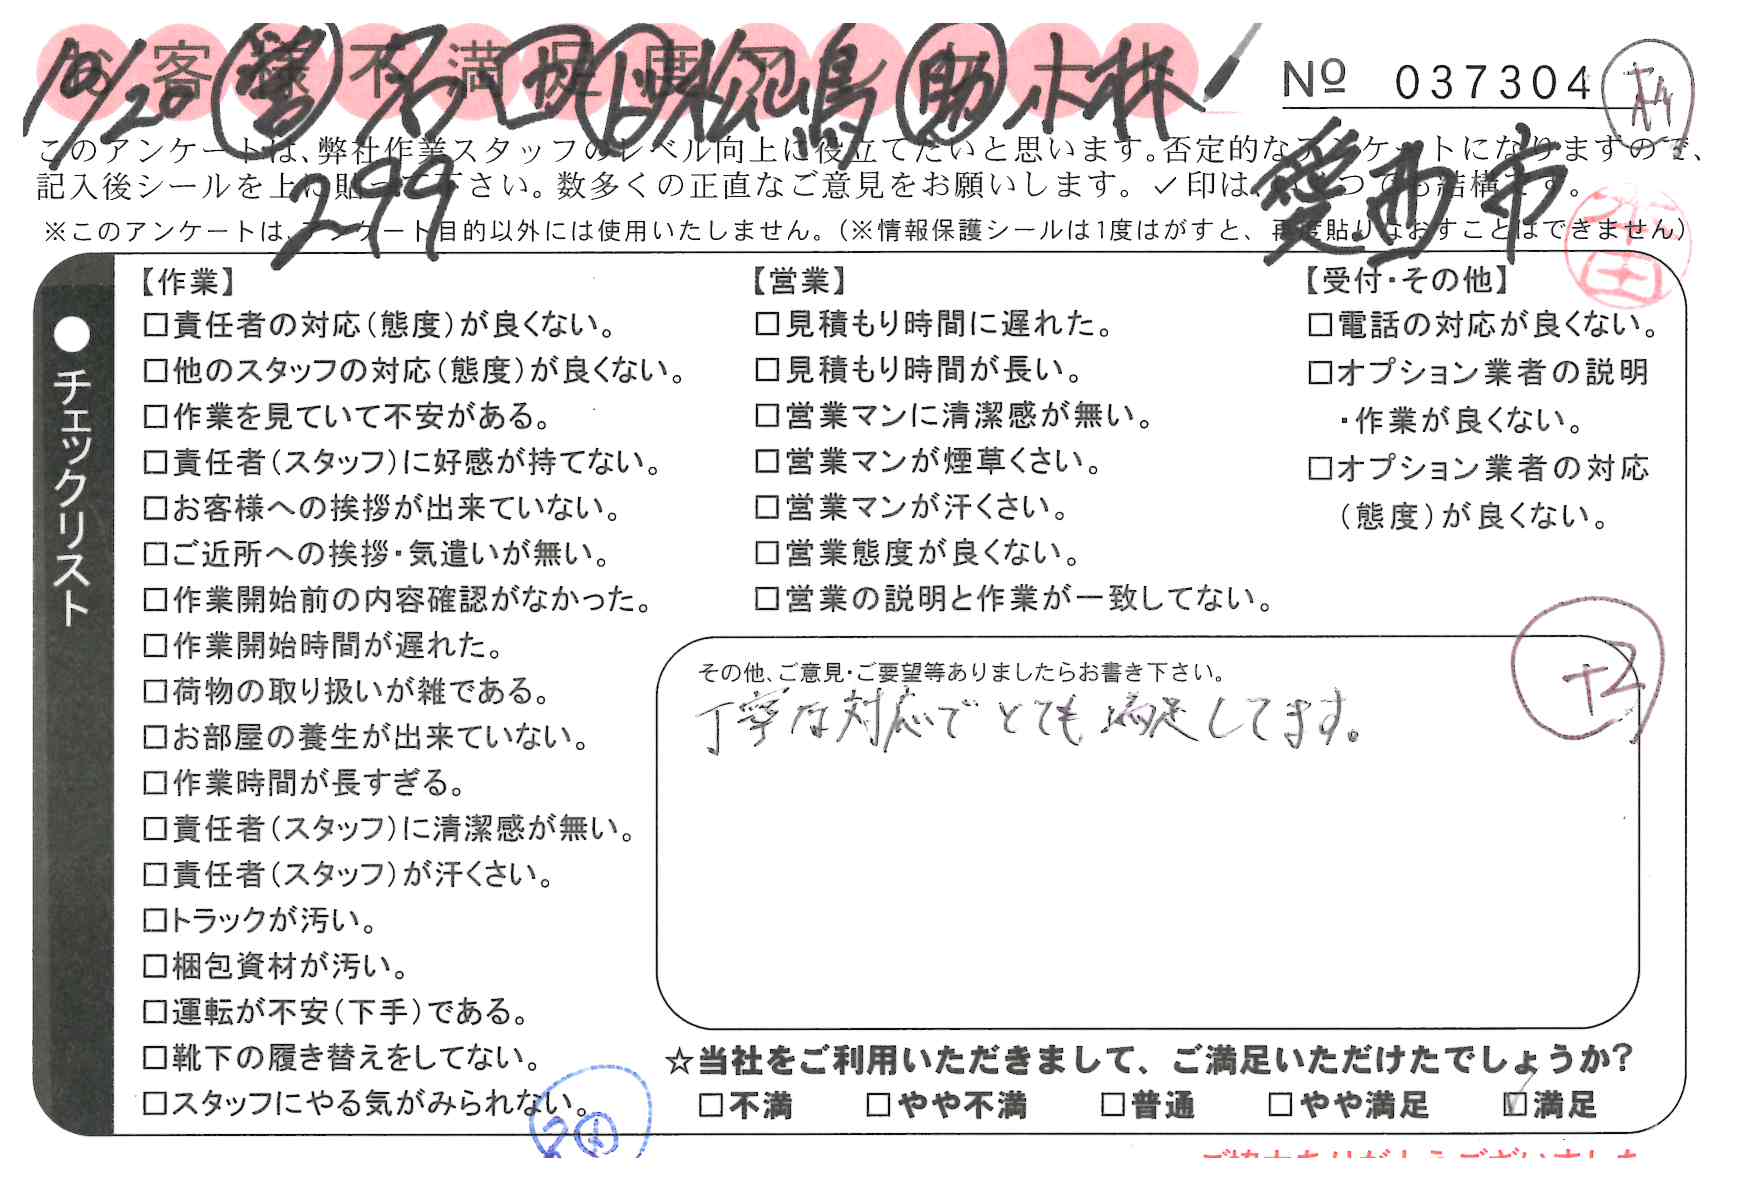 お客様不満足度アンケート
10/20 営 石口 ト 松嶋 助 小林
No 037304
299
愛西市
このアンケートは、弊社作業スタッフのレベル向上に役立てたいと思います。否定的なアンケートになりますので、
記入後シールを上に貼って下さい。数多くの正直なご意見をお願いします。✓印はいくつでも結構です。
※このアンケートは、アンケート目的以外には使用いたしません。(※情報保護シールは1度はがすと、再度貼りなおすことはできません)
●チェックリスト
【作業】
□責任者の対応(態度)が良くない。
□他のスタッフの対応(態度)が良くない。
□作業を見ていて不安がある。
□責任者(スタッフ)に好感が持てない。
□お客様への挨拶が出来ていない。
□ご近所への挨拶・気遣いが無い。
□作業開始前の内容確認がなかった。
□作業開始時間が遅れた。
□荷物の取り扱いが雑である。
□お部屋の養生が出来ていない。
□作業時間が長すぎる。
□責任者(スタッフ)に清潔感が無い。
□責任者(スタッフ)が汗くさい。
□トラックが汚い。
□梱包資材が汚い。
□運転が不安(下手)である。
□靴下の履き替えをしてない。
□スタッフにやる気がみられない。
【営業】
□見積もり時間に遅れた。
□見積もり時間が長い。
□営業マンに清潔感が無い。
□営業マンが煙草くさい。
□営業マンが汗くさい。
□営業態度が良くない。
□営業の説明と作業が一致してない。
【受付・その他】
□電話の対応が良くない。
□オプション業者の説明
・作業が良くない。
□オプション業者の対応
(態度)が良くない。
その他、ご意見・ご要望等ありましたらお書き下さい。
丁寧な対応でとても満足してます。
+2
☆当社をご利用いただきまして、ご満足いただけたでしょうか?
□不満 □やや不満 □普通 □やや満足 ☑満足
ご協力ありがとうございました